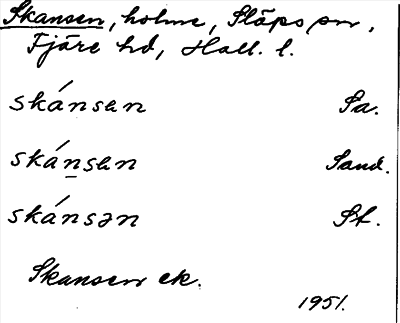 Skansen, holme, Släps sn,
Fjäre hd, Hall. l.
skánsen Sa.
skánsen Sand.
skánsən St.
Skansen ek.
1951.